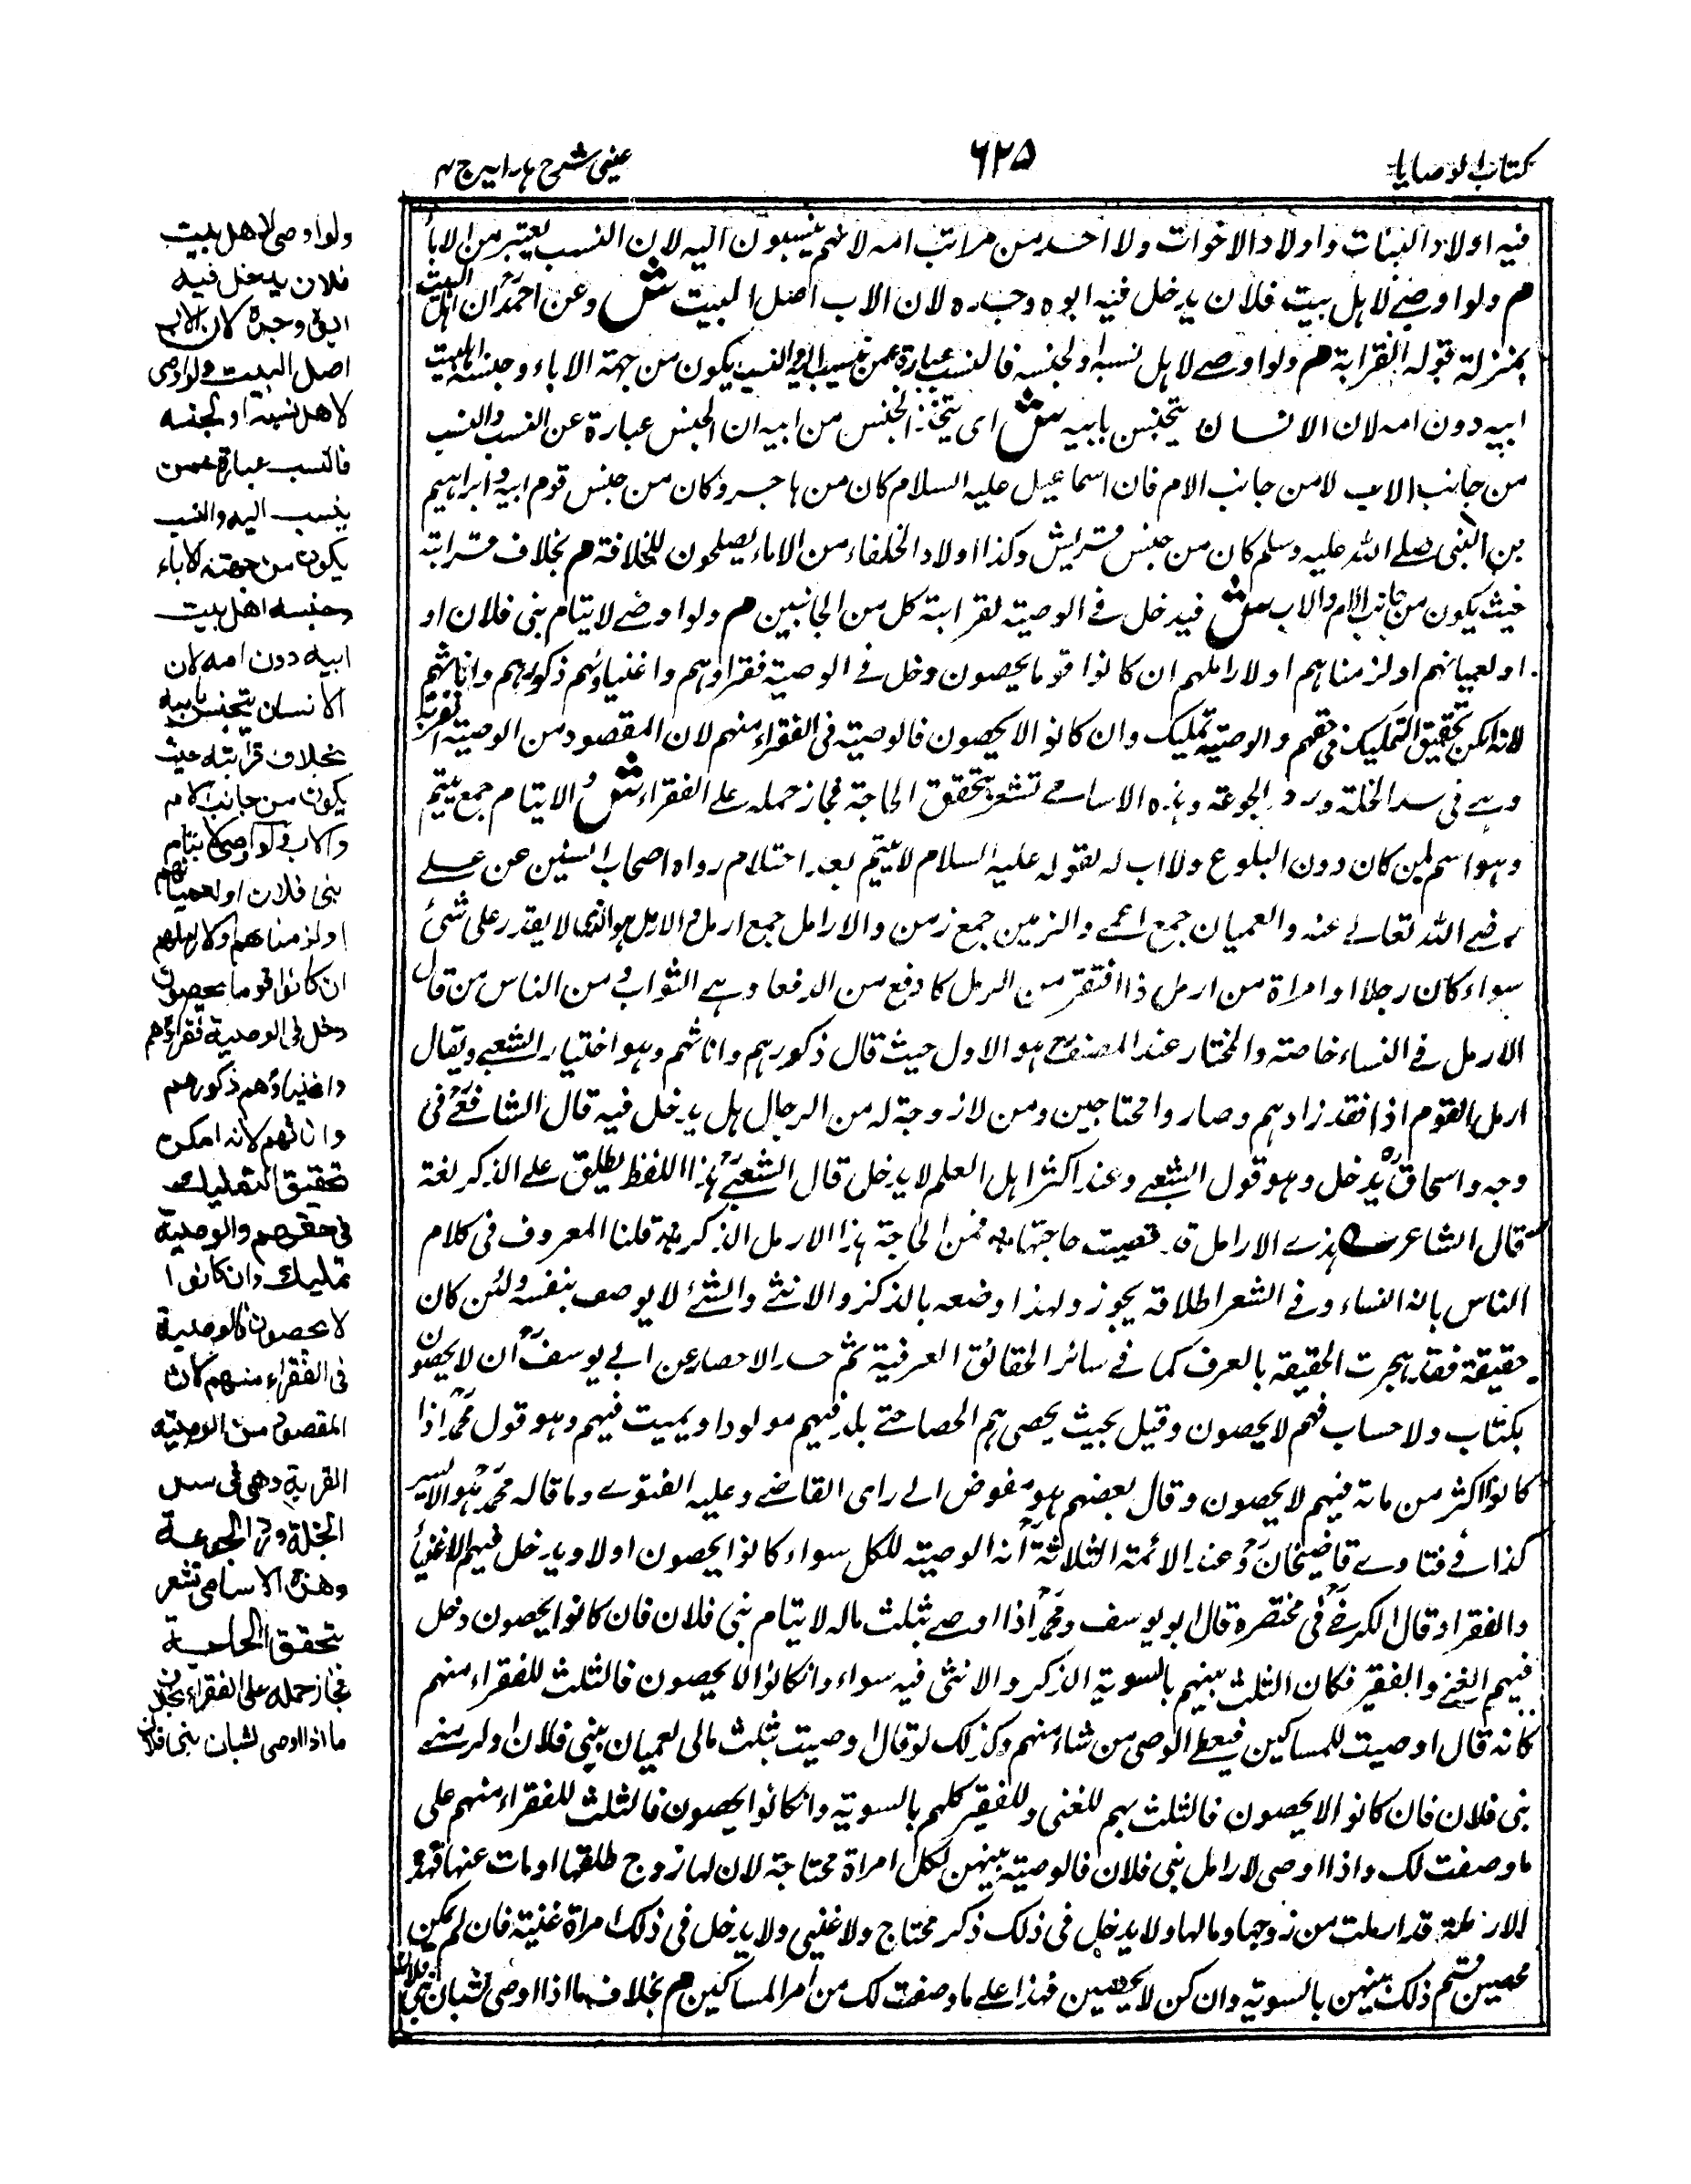 كتاب الوصايا
٦٢٥
عينى شرح هدايه ج ٤
فيه اولاد البنات واولاد الاخوات ولا احد من قراتب امه لانهم ينسبون اليه لان النسب يعتبر من الاباء
م ولو اوصى لاهل بيت فلان يدخل فيه ابوه وجده لان الاب اصل البيت ش وعن احمدؒ ان اهل البيت
بمنزلة قوله القرابة م ولو اوصى لاهل نسبه او لجنسه فالنسب عبارة عمن ينسب اليه والنسب يكون من جهة الاباء وجنسه اهل بيت
ابيه دون امه لان الانسان يتجنس بابيه ش اى يتخذ الجنس من ابيه ان الجنس عبارة عن النسب والنسب
من جانب الاب لا من جانب الام فان اسماعيل عليه السلام كان من هاجر وكان من جنس قوم ابيه وابراهيم
بن النبى صلى الله عليه وسلم كان من جنس قريش وكذا اولاد الخلفاء من الاماء يصلحون للخلافة م بخلاف قرابته
حيث يكون من جانب الام والاب ش فيدخل فى الوصية لقرابته كل من الجانبين م ولو اوصى لايتام بنى فلان او
او لعميانهم او لزمناهم او لاراملهم ان كانوا قوما يحصون دخل فى الوصية فقراؤهم واغنياؤهم ذكورهم واناثهم
لانه امكن تحقيق التمليك فى حقهم والوصية تمليك وان كانوا لا يحصون فالوصية فى الفقراء منهم لان المقصود من الوصية القربة
وهى فى سد الخلة ورد الجوعة وهذه الاسامى تشعر بتحقق الحاجة فجاز حمله على الفقراء ش الايتام جمع يتيم
وهو اسم لمن كان دون البلوغ ولا اب له لقوله عليه السلام لا يتم بعد احتلام رواه اصحاب السنن عن على
رضى الله تعالى عنه والعميان جمع اعمى والزمين جمع زمن والارامل جمع ارمل والارمل هو الذى لا يقدر على شئ
سواء كان رجلا او امراة من ارمل اذا افتقر من الرمل كادفع من الدفعا وهى الثواب ومن الناس من قال
الارمل فى النساء خاصة والمختار عند المصنفؒ هو الاول حيث قال ذكورهم واناثهم وهو اختيار الشعبى ويقال
ارمل القوم اذا نفد زادهم وصاروا محتاجين ومن لا زوجة له من الرجال هل يدخل فيه قال الشافعىؒ فى
وجه واسحاقؒ يدخل وهو قول الشعبى وعند اكثر اهل العلم لا يدخل قال الشعبىؒ هذا اللفظ يطلق على الذكر لغة
قال الشاعر هذى الارامل قد قضيت حاجتها فمن لحاجة هذا الارمل الذكر قلنا المعروف فى كلام
الناس بانه النساء وفى الشعر اطلاقه يجوز ولهذا وضعه بالذكر والانثى والشئ لا يوصف بنفسه ولئن كان
حقيقة فقد هجرت الحقيقة بالعرف كما فى سائر الحقائق العرفية ثم حد الاحصار عن ابى يوسفؒ ان لا يحصون
بكتاب ولا حساب فهم لا يحصون وقيل بحيث يحصى هم الحصا حتى يلد فيهم مولود او يميت فيهم وهو قول محمدؒ اذا
كانوا اكثر من مائة فهم لا يحصون وقال بعضهم هو مفوض الى راى القاضى وعليه الفتوى وما قاله محمدؒ هو الايسر
كذا فى فتاوى قاضيخانؒ وعند الائمة الثلاثةؒ انه الوصية للكل سواء كانوا يحصون او لا ويدخل فيهم الاغنياء
والفقراء وقال الكرخىؒ فى مختصره قال ابو يوسف ومحمدؒ اذا اوصى بثلث ماله لايتام بنى فلان فان كانوا يحصون دخل
فيهم الغنى والفقير فكان الثلث بينهم بالسوية الذكر والانثى فيه سواء وان كانوا لا يحصون فالثلث للفقراء منهم
كانه قال اوصيت للمساكين فيعطى الوصى من شاء منهم وكذلك لو قال اوصيت بثلث مالى لعميان بنى فلان او لزمنى
بنى فلان فان كانوا لا يحصون فالثلث بهم للغنى وللفقير كلهم بالسوية وان كانوا يحصون فالثلث للفقراء منهم على
ما وصفت لك واذا اوصى لارامل بنى فلان فالوصية بينهن لكل امراة محتاجة لان لها زوج طلقها او مات عنها فهو
الارملة قد ارملت من زوجها ومالها ولا يدخل فى ذلك ذكر محتاج ولا غنى ولا يدخل فى ذلك امراة غنية فان لم يكن
يحصين قسم ذلك بينهن بالسوية وان كن لا يحصين فهذا على ما وصفت لك من امر المساكين م بخلاف ما اذا اوصى لشبان بنى فلان
ولو اوصى لاهل بيت
فلان يدخل فيه
ابوه وجده لان الاب
اصل البيت ولو اوصى
لاهل نسبه او لجنسه
فالنسب عبارة عمن
ينسب اليه والنسب
يكون من جهة الاباء
وجنسه اهل بيت
ابيه دون امه لان
الانسان يتجنس بابيه
بخلاف قرابته حيث
يكون من جانب الام
والاب ولو اوصى لايتام
بنى فلان او لعميانهم
او لزمناهم او لاراملهم
ان كانوا قوما يحصون
دخل فى الوصية فقراؤهم
واغنياؤهم ذكورهم
واناثهم لانه امكن
تحقيق التمليك
فى حقهم والوصية
تمليك وان كانوا
لا يحصون فالوصية
فى الفقراء منهم لان
المقصود من الوصية
القربة وهى فى سد
الخلة ورد الجوعة
وهذه الاسامى تشعر
بتحقق الحاجة
فجاز حمله على الفقراء بخلاف
ما اذا اوصى لشبان بنى فلان